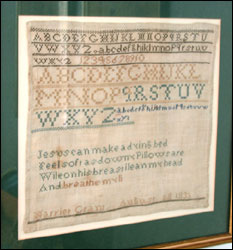 ABCDEFGHIKLMNOPQRSTU
VWXYZ abcdefghiklmnopqrstu
vwxyz 12345678910
ABCDEFGHIKL
MNOPQRSTUV
WXYZ abcdefghiklmnopqrstuv
Jesus can make a dying bed
Feels soft as downy Pillows are
While on his breast I lean my head
And breathe my li
Harriet August